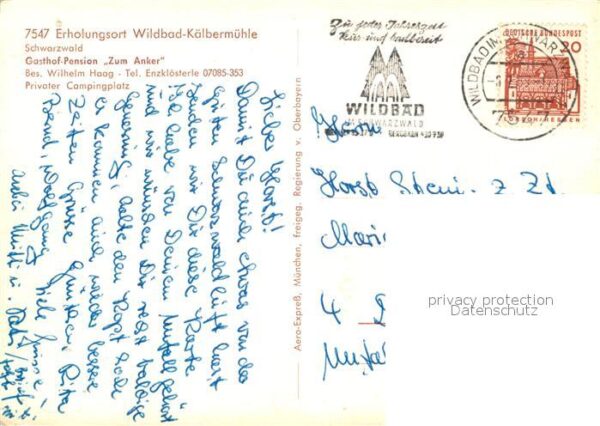 7547 Erholungsort Wildbad-Kälbermühle
Schwarzwald
Gasthof-Pension „Zum Anker"
Bes. Wilhelm Haag - Tel. Enzklösterle 07085-353
Privater Campingplatz
Lieber Horst!
Damit Du auch etwas von der
guten Schwarzwaldluft hast
senden wir Dir diese Karte
Ich habe von Deinem Unfall gehört
und wir wünschen Dir recht baldige
Genesung, halte den Kopf hoch
es kommen auch wieder bessere
Zeiten. Grüsse Günther, Rita
Bernd, Wolfgang viele Grüsse
Aero-Expreß, München, freigeg. Regierung v. Oberbayern
Zu jeder Jahreszeit
Kur- und badbereit
WILDBAD
IM SCHWARZWALD
BERGBAHN 430-750
WILDBAD IM SCHWARZW
DEUTSCHE BUNDESPOST
20
Herrn
Horst z Zt.
4
privacy protection
Datenschutz